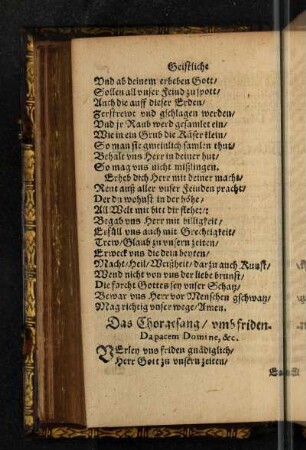 Geistliche
Vnd ab deinem erheben Gott/
Sollen all vnser Feind zu spott/
Auch die auff dieser Erden/
Zerstrewt vnd gschlagen werden/
Vnd jr Raub werd gesamlet ein/
Wie in ein Grub die Käfer klein/
So man sie gmeinlich samlen thut/
Behalt vns Herr in deiner hut/
So mag vns nicht mißlingen.
Erheb dich Herr mit deiner macht/
Reut auß aller vnser Feinden pracht/
Der du wohnst in der höhe/
All Welt mit bitt dir flehet:
Begab vns Herr mit billigkeit/
Erfüll vns auch mit Grechtigkeit/
Trew/ Glaub zu vnsern zeiten/
Erweck vns die drin beyten/
Macht/ Heil/ Weißheit/ darzu auch Kunst/
Wend nicht von vns der liebe brunst/
Die forcht Gottes sey vnser Schatz/
Bewar vns Herr vor Menschen gschwatz/
Mag richtig vnser wege/ Amen.
Das Chorgesang/ vmb friden.
Da pacem Domine, &c.
VErley vns friden gnädiglich/
Herr Gott zu vnsern zeiten/